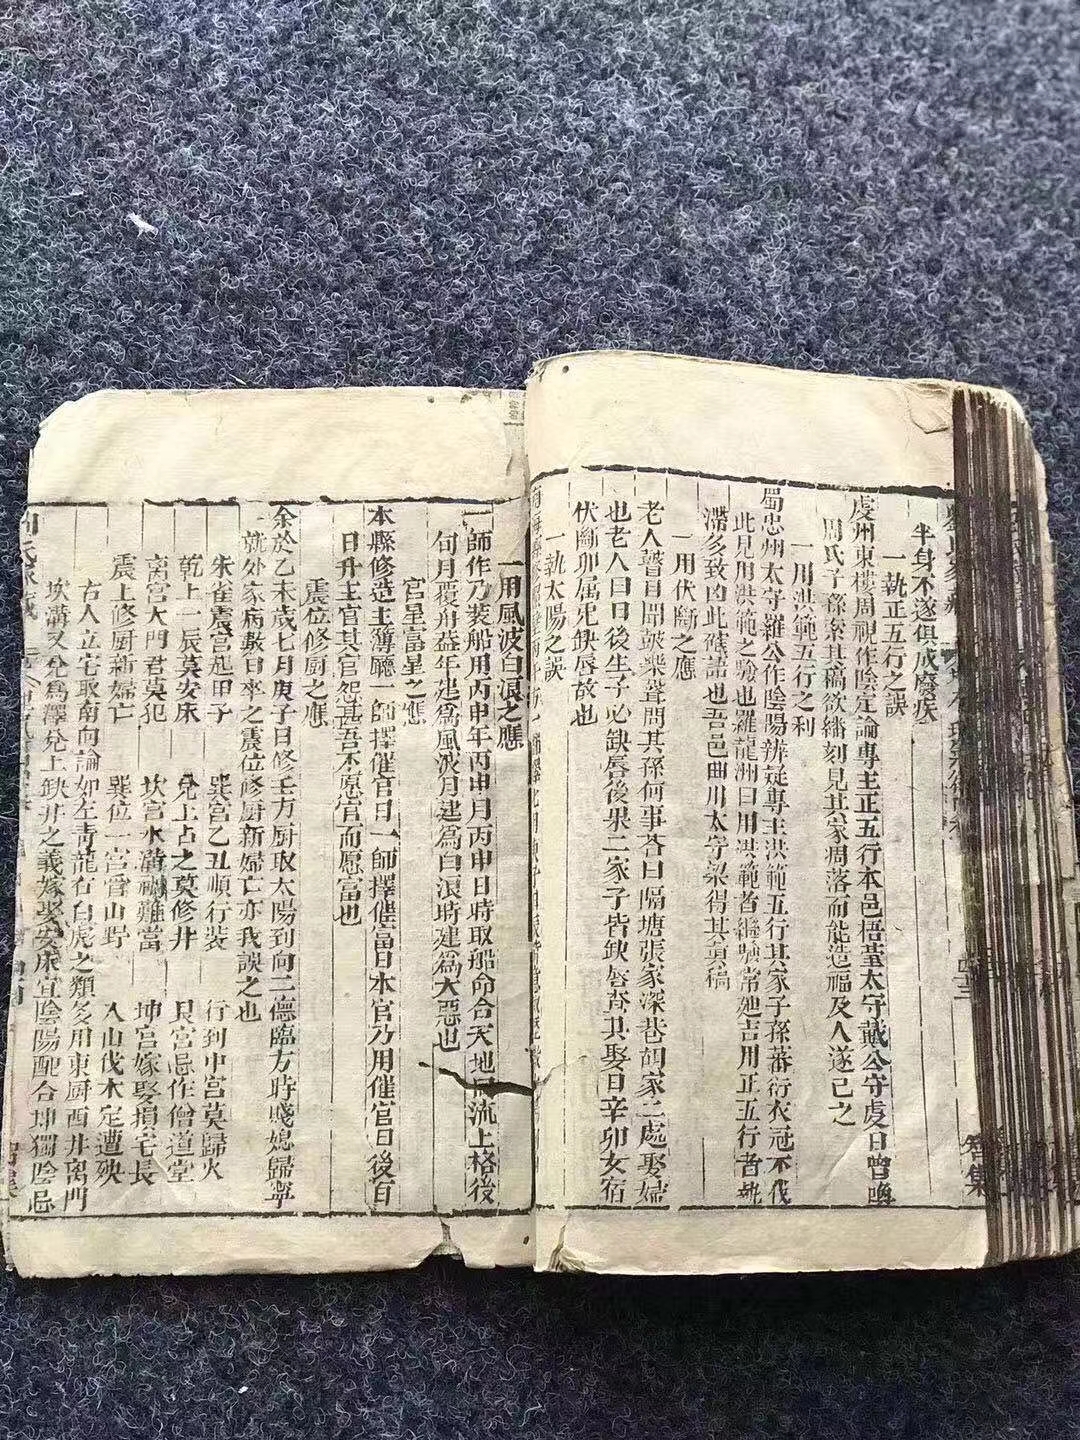 半身不遂俱成廢疾
一執正五行之誤
虔州東樓周視作陰定論專主正五行本邑梧臺太守戴公守虔日曾晦
周氏子孫索其稿欲繙刻見其家凋落而能造福及人遂已之
一用洪範五行之利
蜀忠州太守羅公作陰陽辨疑專主洪範五行其家子孫蕃衍衣冠不伐
此見用洪範之驗也羅龍洲曰用洪範者縱缺常廸吉用正五行者執
滯多致凶此確語也吾邑曲川太守梁得其真稿
一用伏斷之應
老人瞽目聞鼓樂聲問其孫何事荅曰隔塘張家深巷胡家二處娶婦
也老人曰日後生子必缺唇後果二家子皆缺唇查其娶日辛卯女宿
伏斷卯属兎缺唇故也
一執太陽之誤
一用風波白浪之應
一師作乃装船用丙申年丙申月丙申日時取船命合天地同流上格後
旬月覆舟益年建為風波月建為白浪時建為大惡也
宮星富星之應
本縣修造主簿廳一師擇催官日一師擇催富日本官乃用催官日後百
日升主官其官怨甚吾不愿官而愿富也
震位修厨之應
余於乙未歲七月庚子日修壬方厨取太陽到向三德臨方時賤媳歸寧
就外家病數日卒之震位修厨新婦亡亦我誤之也
朱雀震宮起甲子 巽宮乙丑順行装 行到中宮莫歸火
乾上一辰莫安床 兌上占之莫修井 艮宮忌作僧道堂
离宮大門君莫犯 坎宮水溝禍難當 坤宮嫁娶損宅長
震上修厨新婦亡 巽位一宮爲山野 入山伐木定遭殃
古人立宅取南向論如左青龍右白虎之類多用東厨西井离門
坎溝又兌爲澤兌上缺井之義嫁娶安床宜陰陽配合坤獨陰忌